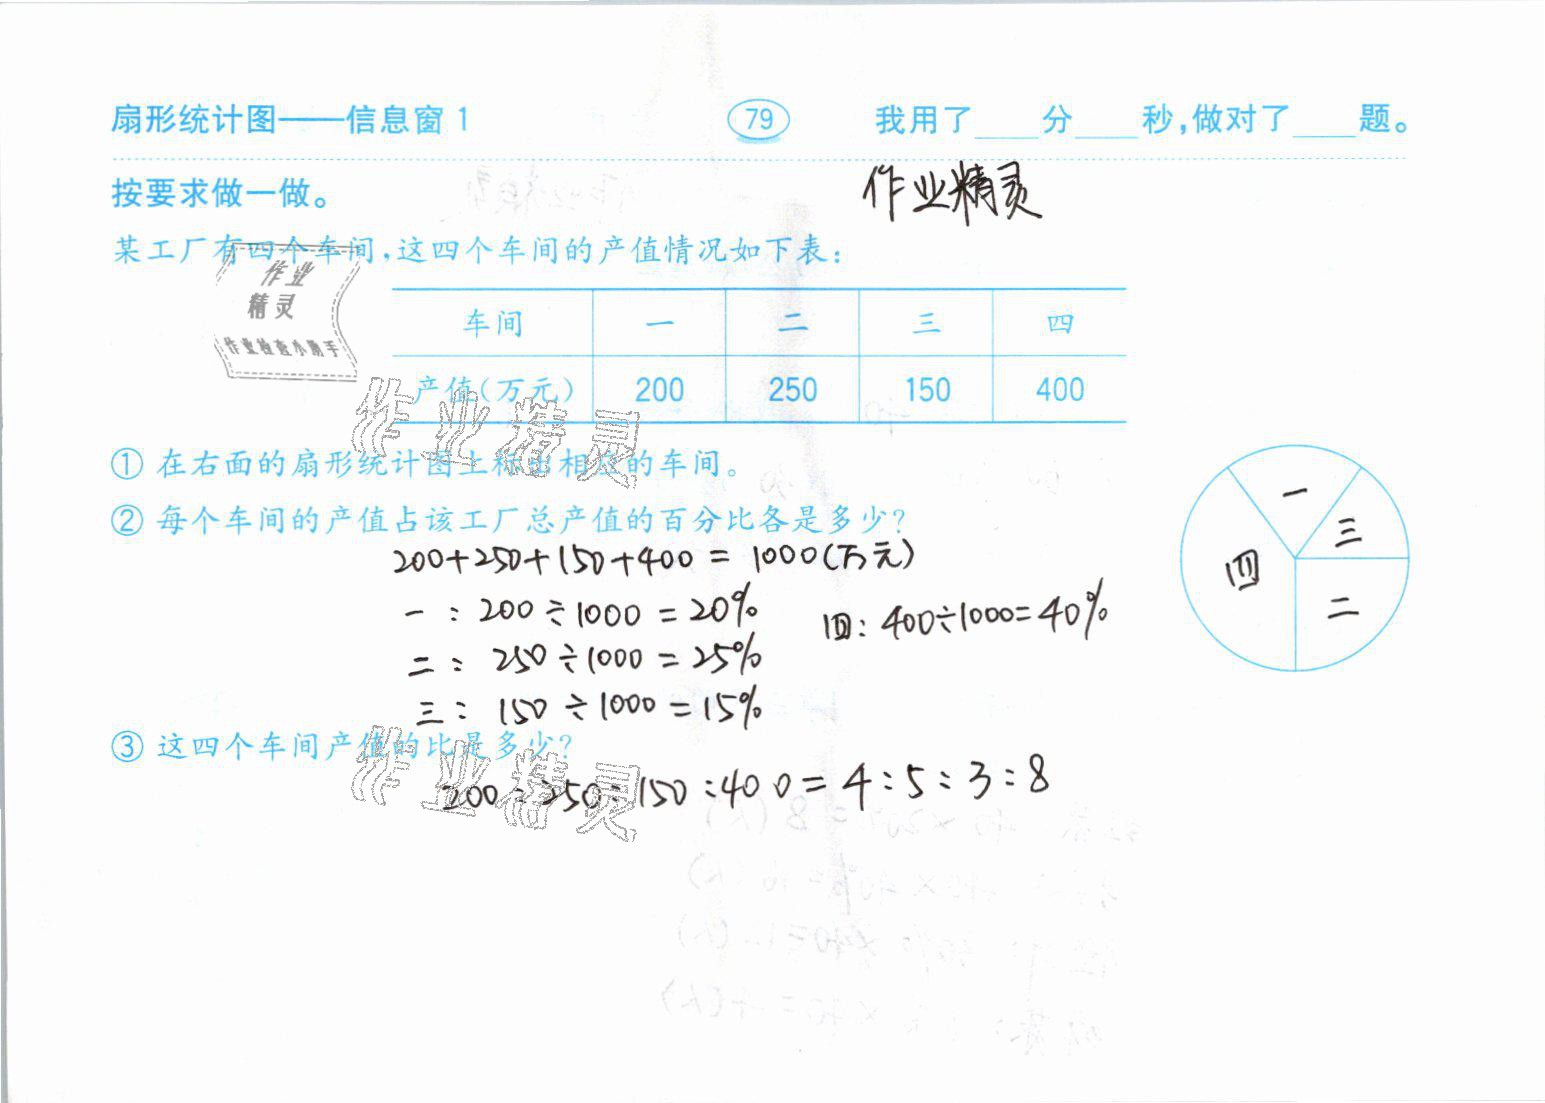 扇形统计图——信息窗1 79 我用了____分____秒,做对了____题。
按要求做一做。
作业精灵
某工厂有四个车间,这四个车间的产值情况如下表:
作业
精灵
作业检查小助手
车间 一 二 三 四
产值(万元) 200 250 150 400
作业精灵
① 在右面的扇形统计图上标出相应的车间。
② 每个车间的产值占该工厂总产值的百分比各是多少?
200+250+150+400=1000(万元)
一:200÷1000=20% 四:400÷1000=40%
二:250÷1000=25%
三:150÷1000=15%
一
三
四
二
③ 这四个车间产值的比是多少?
作业精灵
200:250:150:400=4:5:3:8